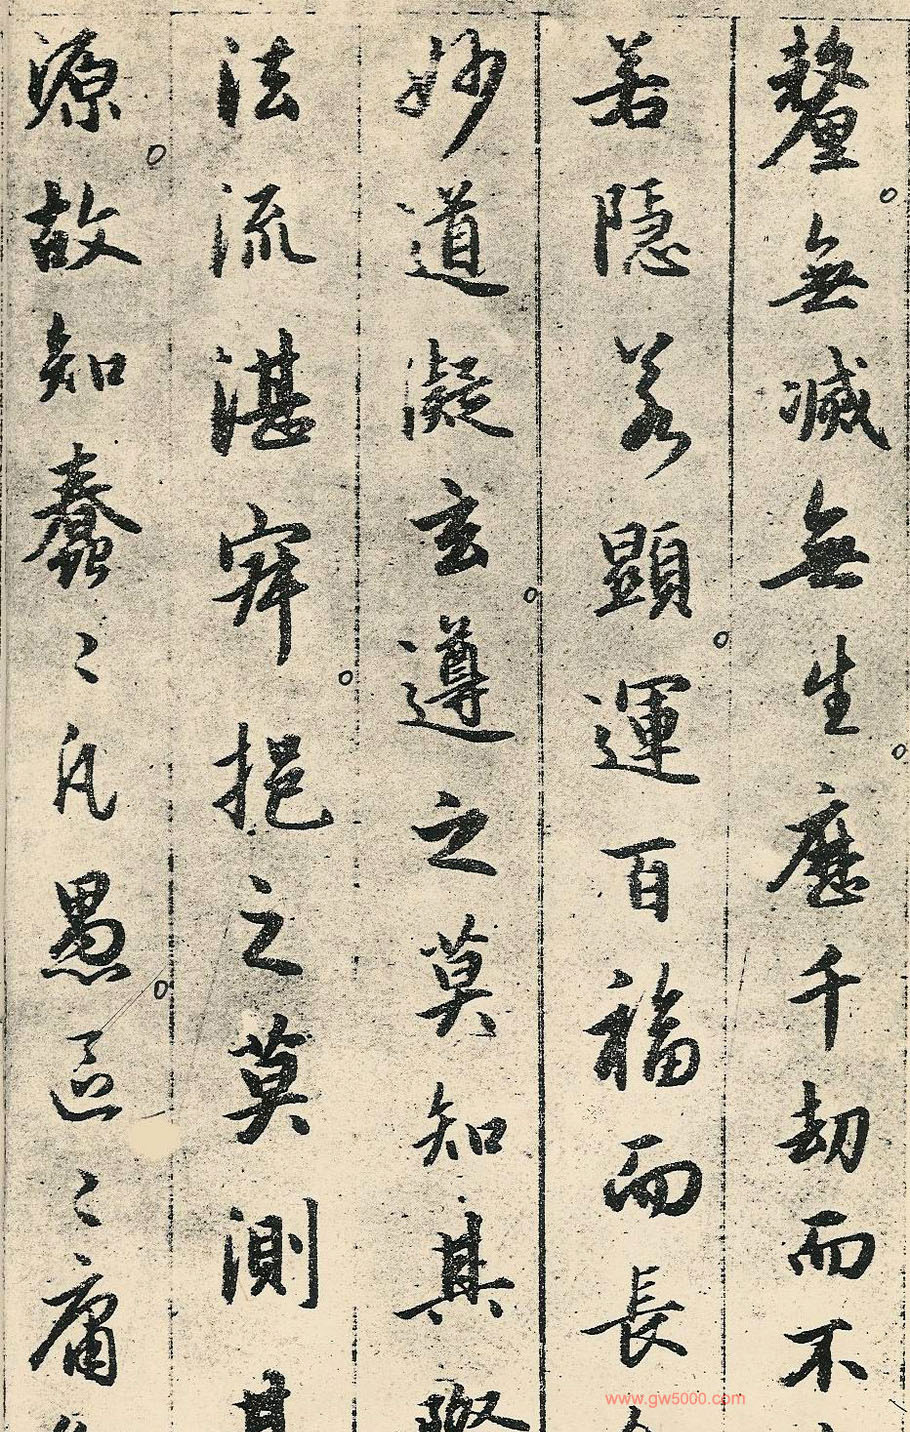 釐無滅無生歷千劫而不
若隱若顯運百福而長
妙道凝玄遵之莫知其際
法流湛寂挹之莫測其
源故知蠢〻凡愚區〻庸
www.gw5000.com